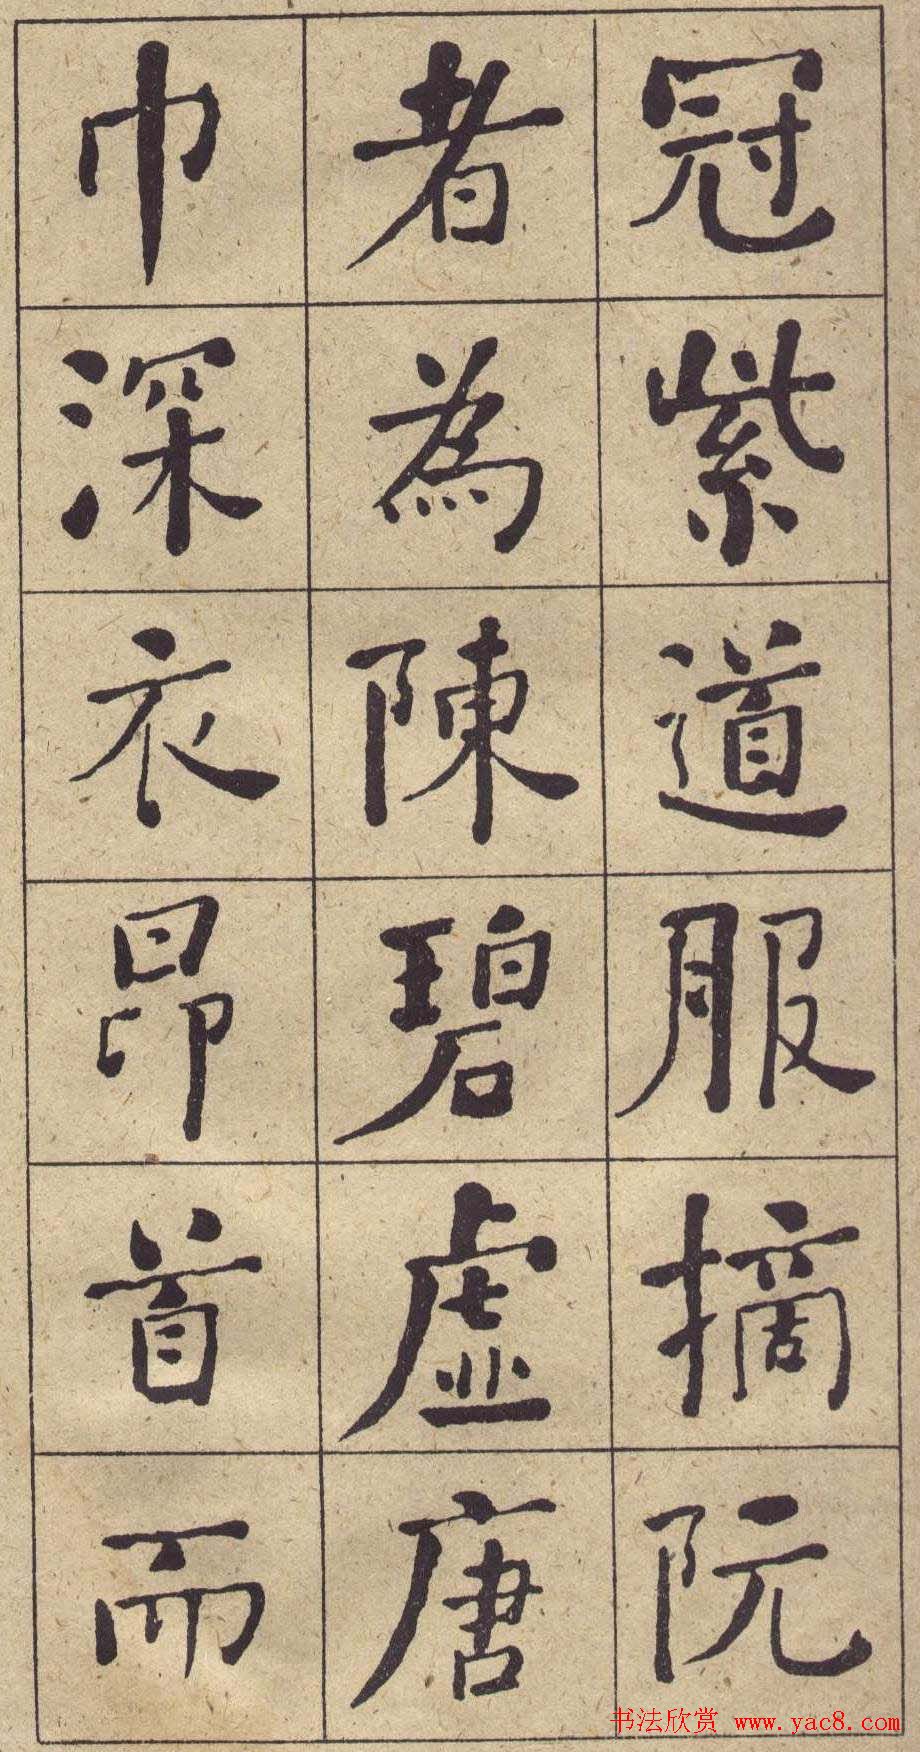 冠紫道服摘阮
者為陳碧虛唐
巾深衣昂首而
书法欣赏 www.yac8.com